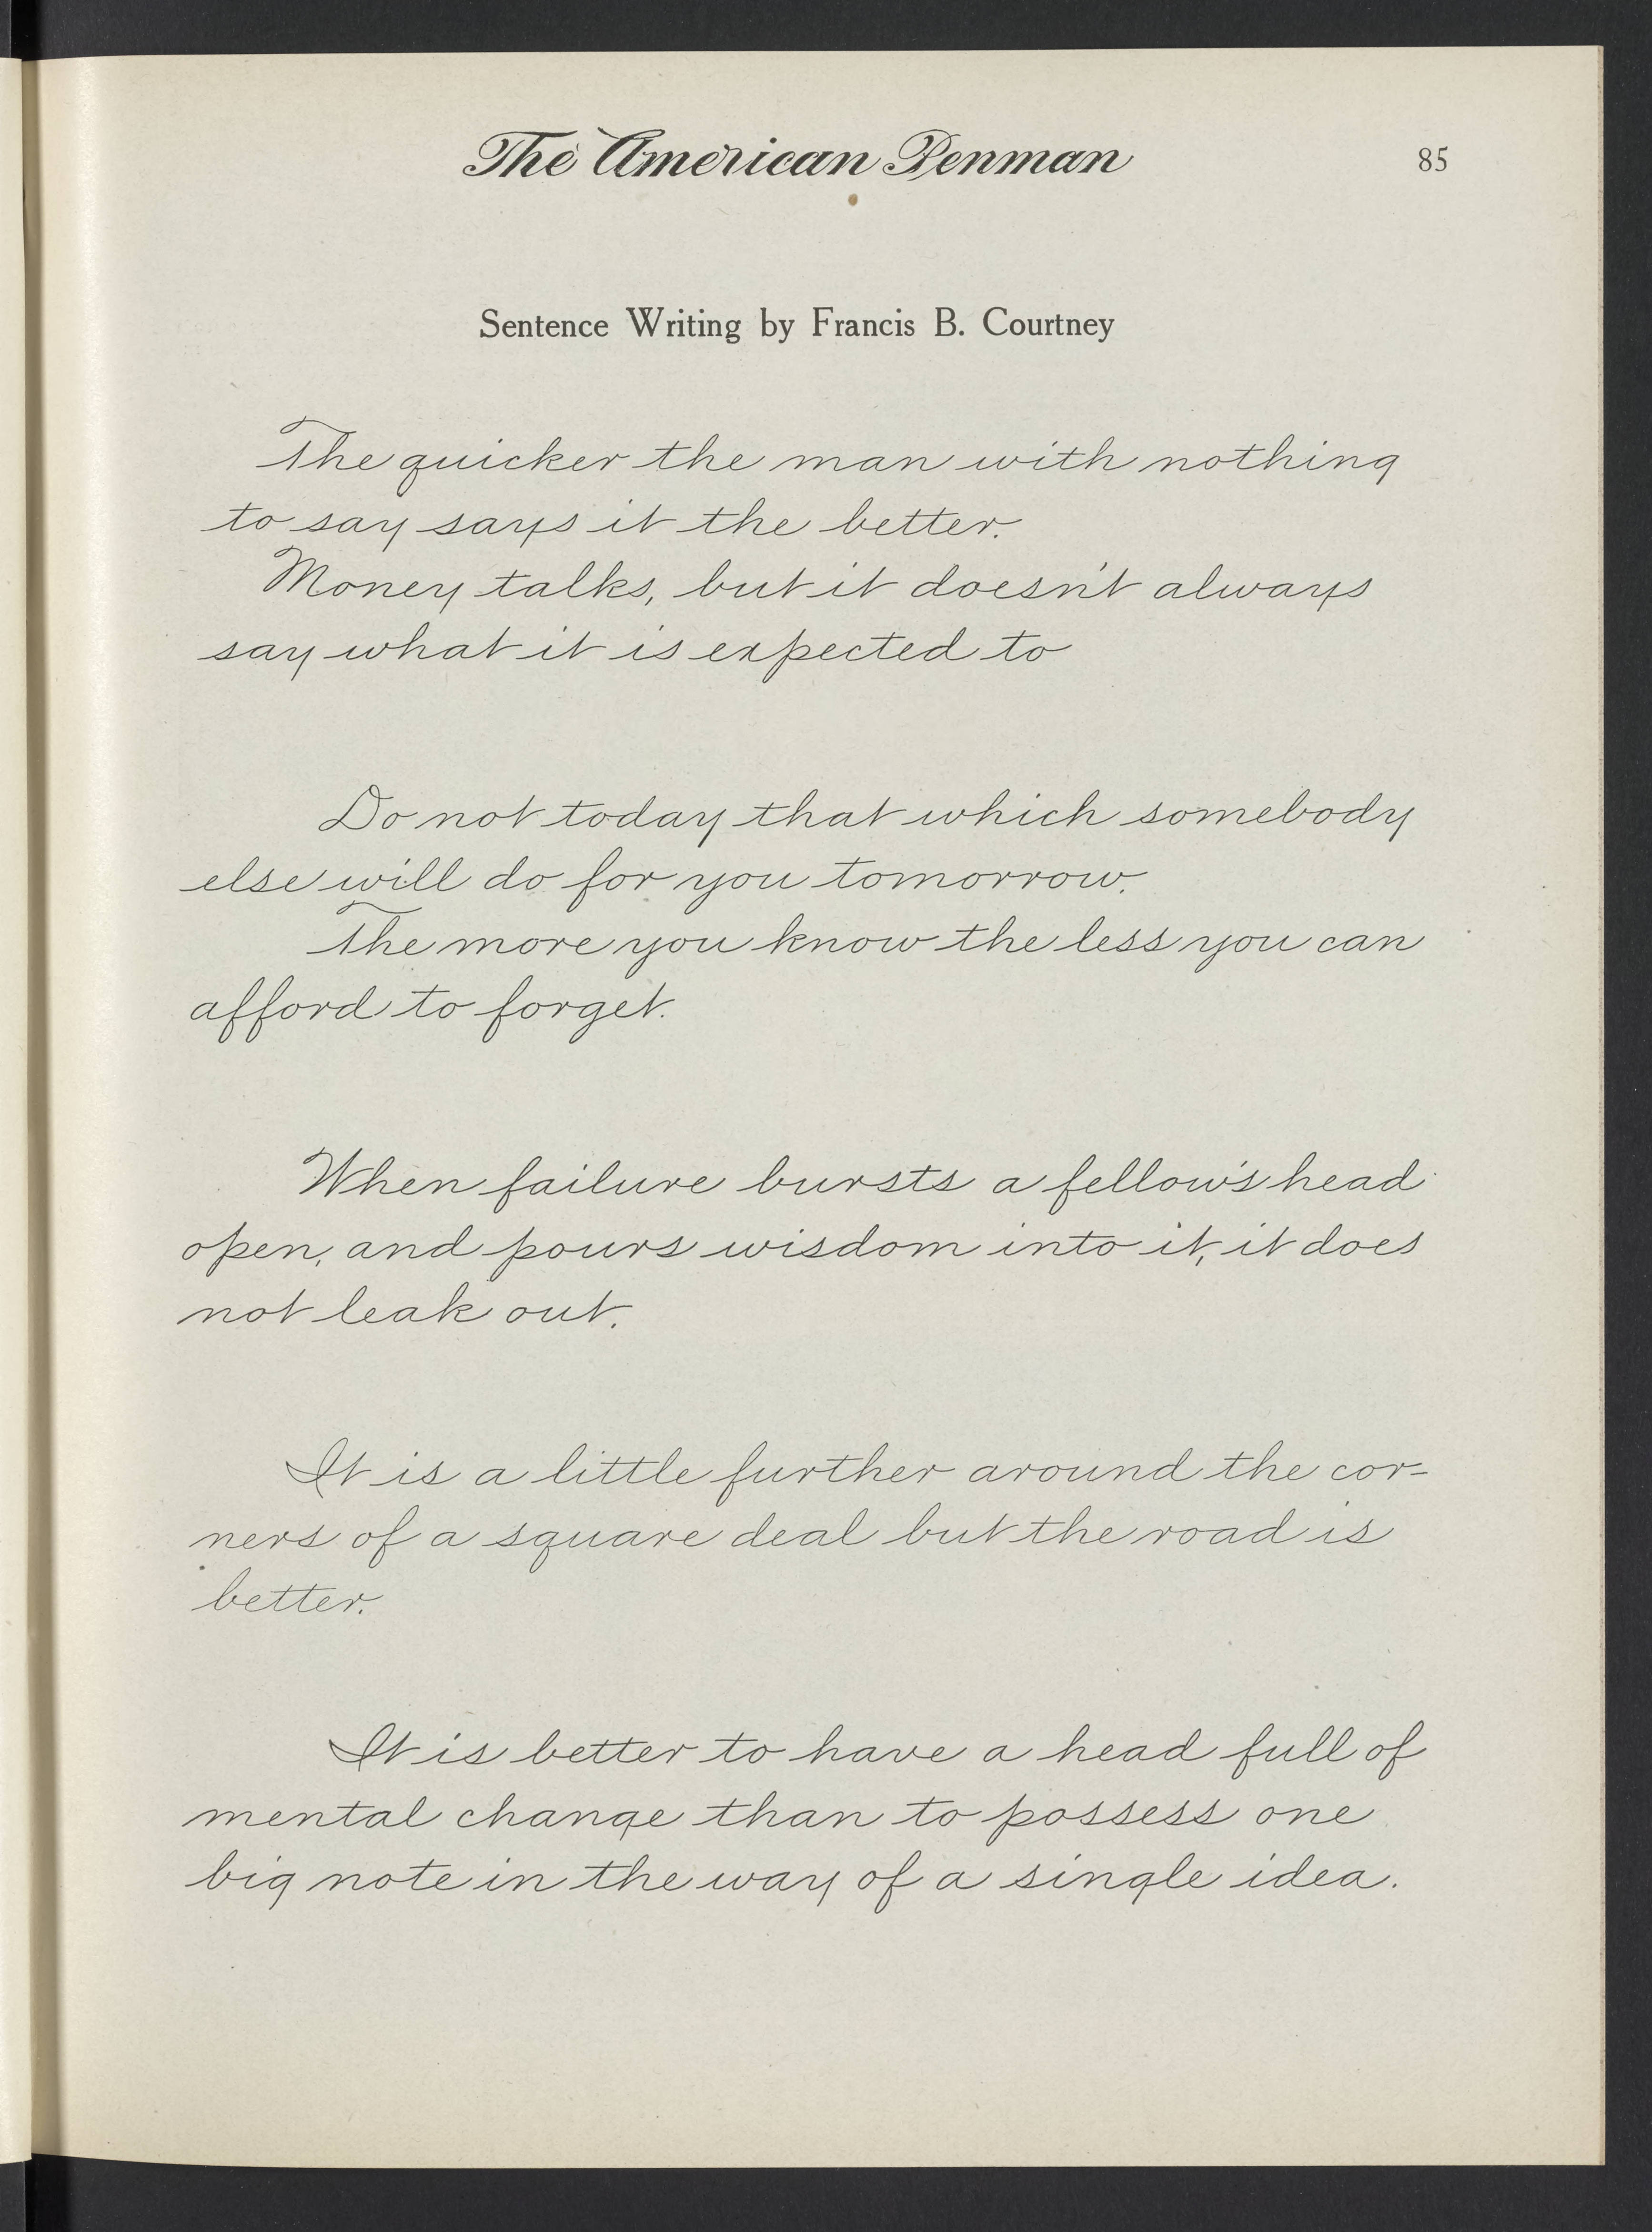 The American Penman
85
Sentence Writing by Francis B. Courtney
The quicker the man with nothing
to say says it the better.
Money talks, but it doesn't always
say what it is expected to
Do not today that which somebody
else will do for you tomorrow.
The more you know the less you can
afford to forget.
When failure bursts a fellow's head
open, and pours wisdom into it, it does
not leak out.
It is a little further around the cor-
ners of a square deal but the road is
better.
It is better to have a head full of
mental change than to possess one
big note in the way of a single idea.